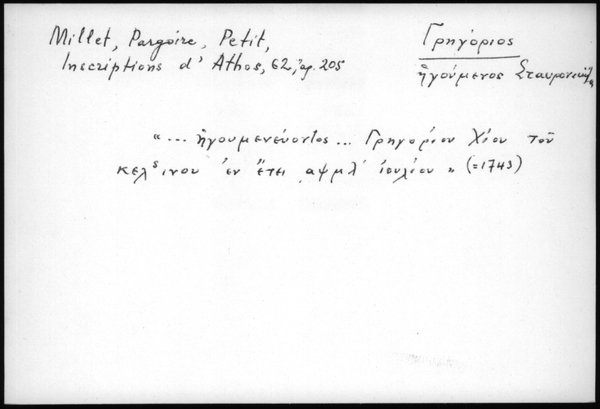 Millet, Pargoire, Petit,
Inscriptions d' Athos, 62, ἀρ. 205
Γρηγόριος
ἡγούμενος Σταυρονικήτα
"... ἡγουμενεύοντος ... Γρηγορίου Χίου τοῦ
ἐν ἔτει ͵αψμγ´ ἰουλίου " (=1743)